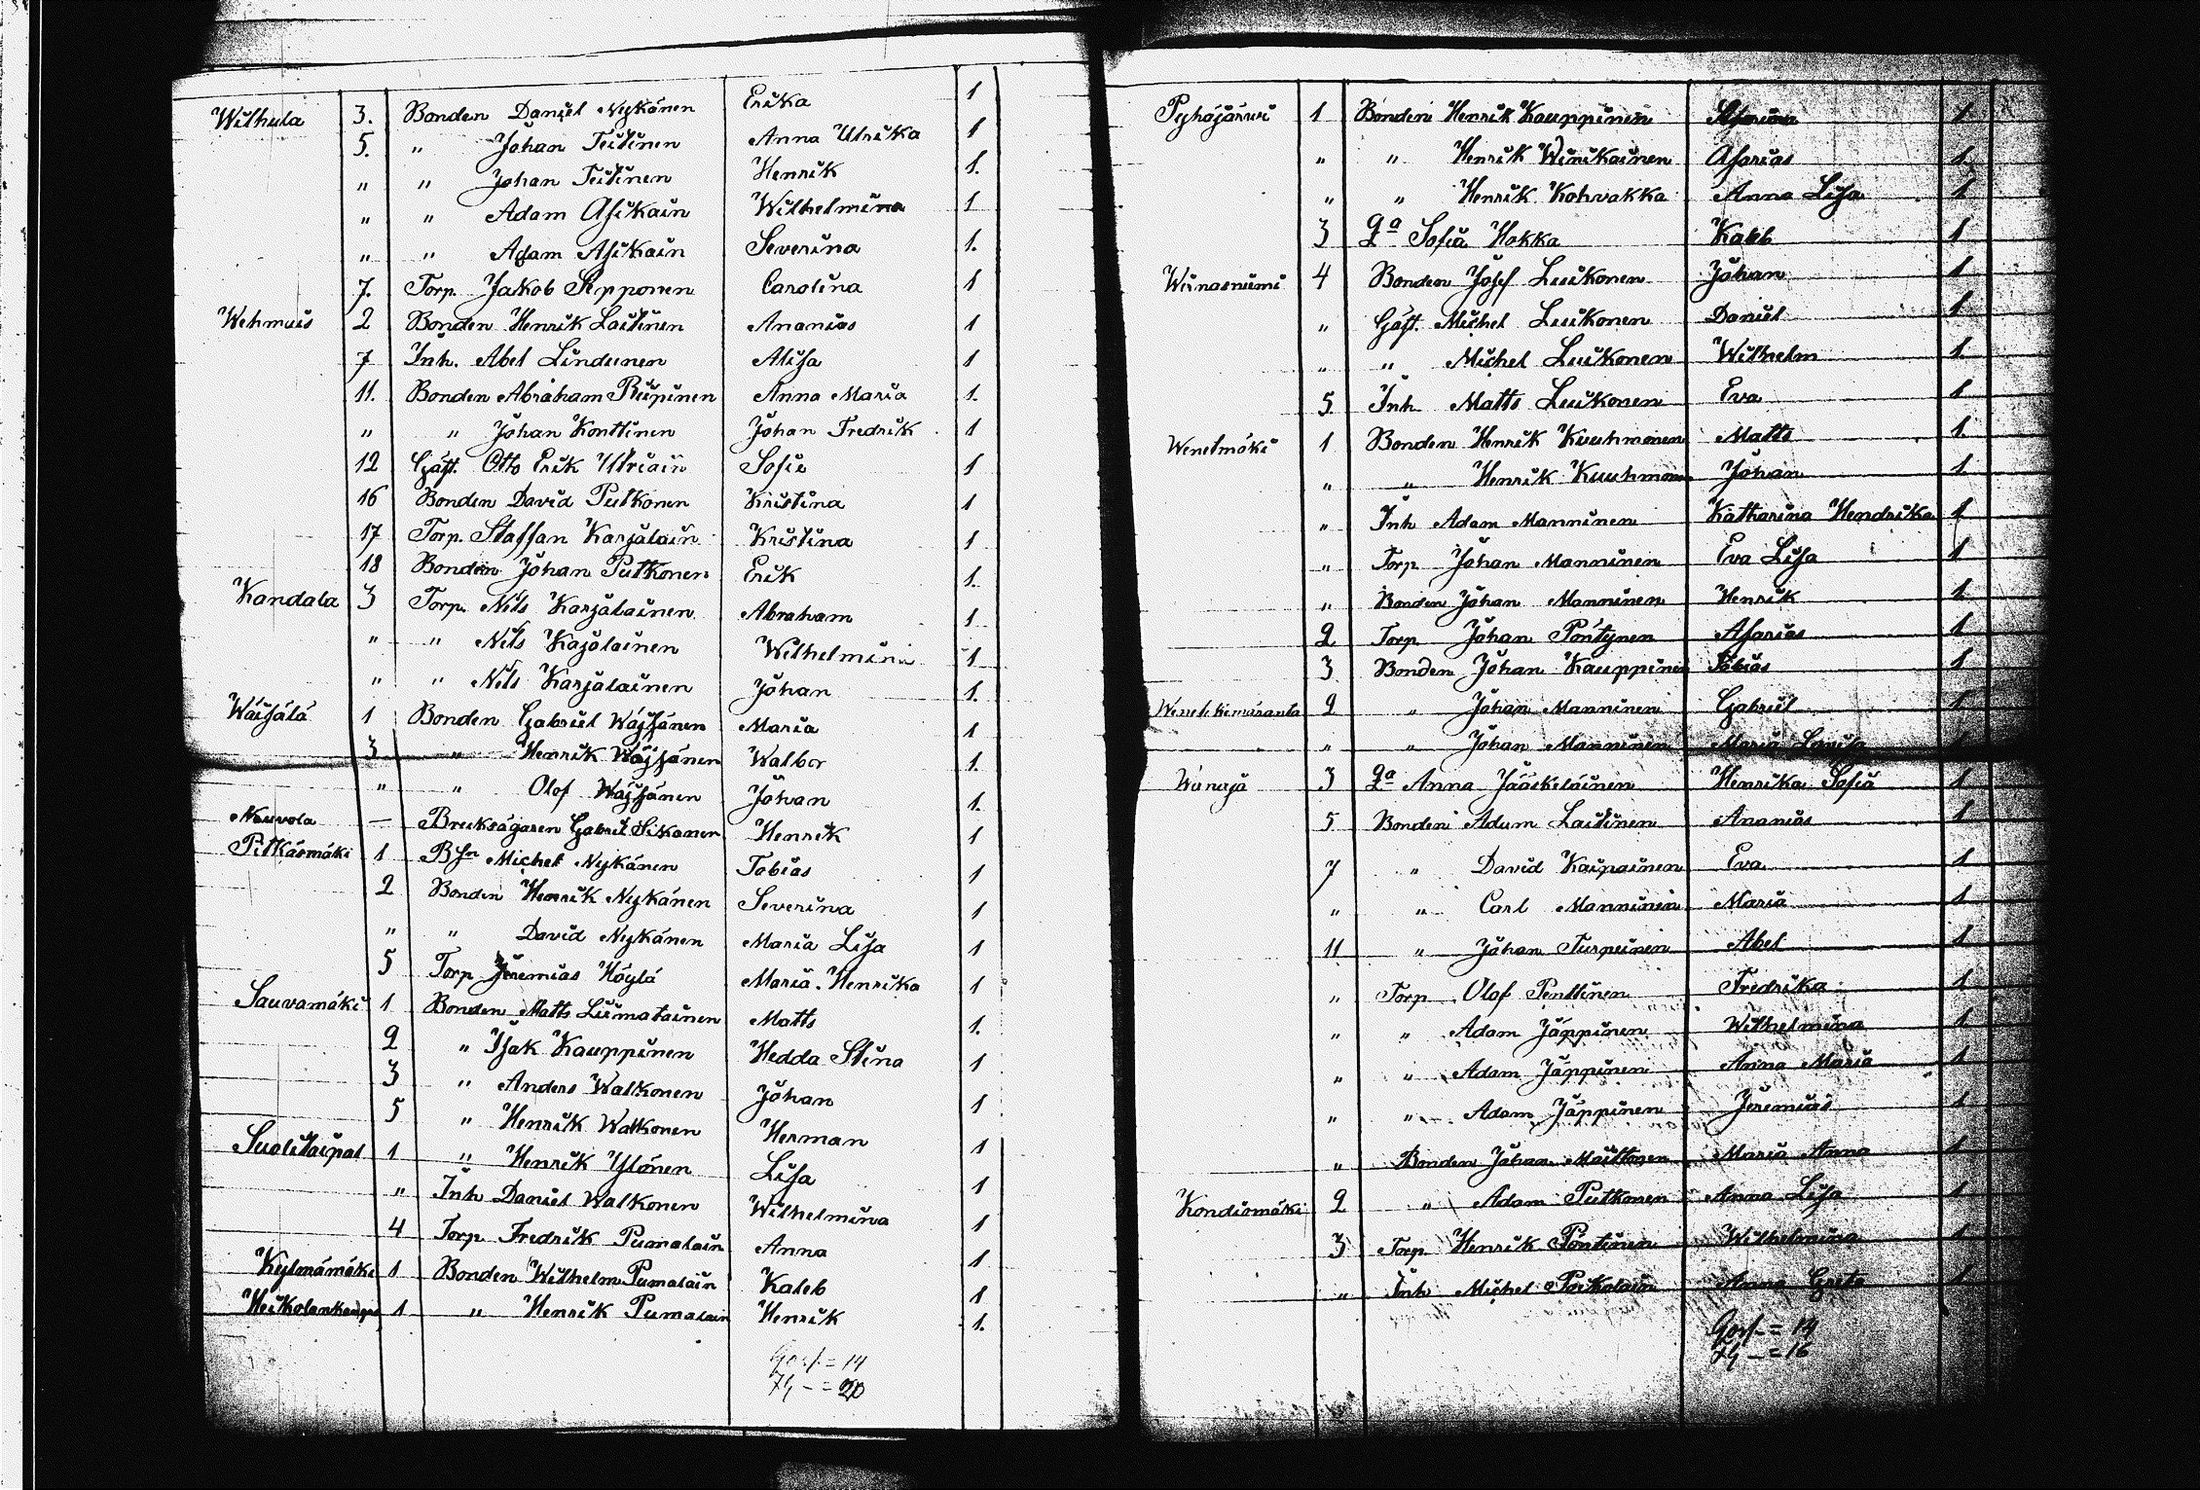 Wilhula 3. Bonden Daniel Nykänen Erika 1
5. " Johan Teitinen Anna Ulrika 1
" " Johan Teitinen Henrik 1.
" " Adam Asikain Wilhelmina 1
" " Adam Asikain Severina 1.
7. Torp. Jakob Sepponen Carolina 1
Wehmais 2 Bonden Henrik Laitinen Ananias 1
7 Inh. Abel Lindunen Alisa 1
11. Bonden Abraham Piipinen Anna Maria 1.
" " Johan Konttinen Johan Fredrik 1
12 Gäst. Otto Erik Utriain Sofie 1
16 Bonden David Putkonen Kristina 1
17 Torp. Staffan Karjalain Kristina 1
18 Bonden Johan Putkonen Erik 1.
Kandala 3 Torp. Nils Karjalainen Abraham 1
" " Nils Kajalainen Wilhelmina 1
" " Nils Karjalainen Johan 1.
Wäisälä 1 Bonden Gabriel Wäisänen Maria 1
3 " Henrik Wäisänen Walbor 1.
" " Olof Wäisänen Johan 1.
Neuvola — Bruksägaren Gabriel Sikanen Henrik 1
Pitkäsmäki 1 Bsn Michel Nykänen Tobias 1
2 Bonden Henrik Nykänen Severina 1
" " David Nykänen Maria Lisa 1
5 Torp Jeremias Höylä Maria Henrika 1
Sauvamäki 1 Bonden Matts Liimatainen Matts 1.
2 " Isak Kauppinen Hedda Stina 1
3 " Anders Walkonen Johan 1
5 " Henrik Walkonen Herman 1
Suolitaipal 1 " Henrik Ylönen Lisa 1
" Inh Daniel Walkonen Wilhelmina 1
4 Torp Fredrik Pumalain Anna 1
Kylmämäki 1 Bonden Wilhelm Pumalain Kaleb 1
1 " Henrik Pumalain Henrik 1.
= 14
= 20
Pyhäjärwi 1 Bonden Henrik Kauppinen 1
" " Henrik Winikainen Asarias 1.
" " Henrik Kohvakka Anna Lisa 1
3 Qa Sofia Hokka Kaleb 1
Wiinasniemi 4 Bonden Josef Luikonen Johan 1
" Gäst. Michel Luikonen Daniel 1
" " Michel Luikonen Wilhelm 1.
5 Inh Matts Luikonen Eva 1
Wenetmäki 1 Bonden Henrik Kuuhmonen Matts 1.
" " Henrik Kuuhmonen Johan 1.
" Inh Adam Manninen Katharina Hendrika 1.
" Torp Johan Manninen Eva Lisa 1
" Bonden Johan Manninen Henrik 1
2 Torp Johan Pöntynen Asarias 1
3 Bonden Johan Kauppinen Tobias 1
2 " Johan Manninen Gabriel 1
" " Johan Manninen Maria Lovisa 1
Wänajä 3 Qa Anna Jääskeläinen Henrika Sofia 1
5 Bonden Adam Laitinen Ananias 1
7 " David Kaipainen Eva 1
" " Carl Manninen Maria 1
11 " Johan Turpeinen Abel 1
" Torp Olof Penttinen Fredrika 1
" " Adam Jäppinen Wilhelmina 1
" " Adam Jäppinen Anna Maria 1
" " Adam Jäppinen Jeremias 1
" Bonden Johan Maria Anna 1
Kondiomäki 2 " Adam Putkonen Anna Lisa 1
3 Torp Henrik Pöntinen Wilhelmina 1
" Inh Michel Poikolain Anna Greta 1
= 14
= 16